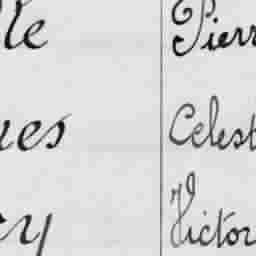 lle Pierr
ues Celest
cy Victor